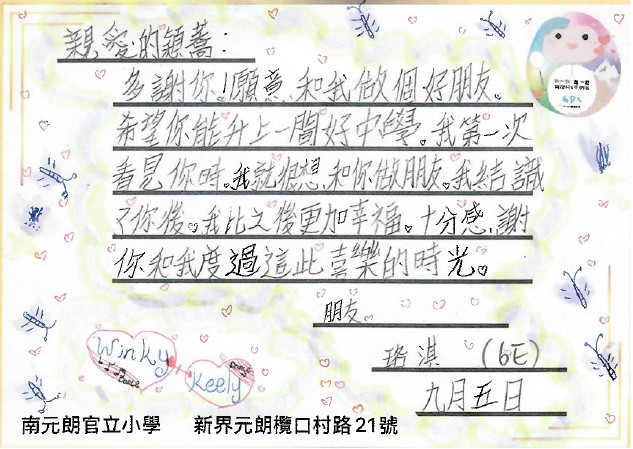 親愛的穎蕎：
多謝你！願意和我做個好朋友。
希望你能升上一間好中學。我第一次
看見你時。我就很想和你做朋友。我結識
了你後。我比之後更加幸福。十分感謝
你和我度過這此喜樂的時光。
朋友
珞淇 (6E)
九月五日
Winky
Dance
Keely
南元朗官立小學 新界元朗欖口村路21號